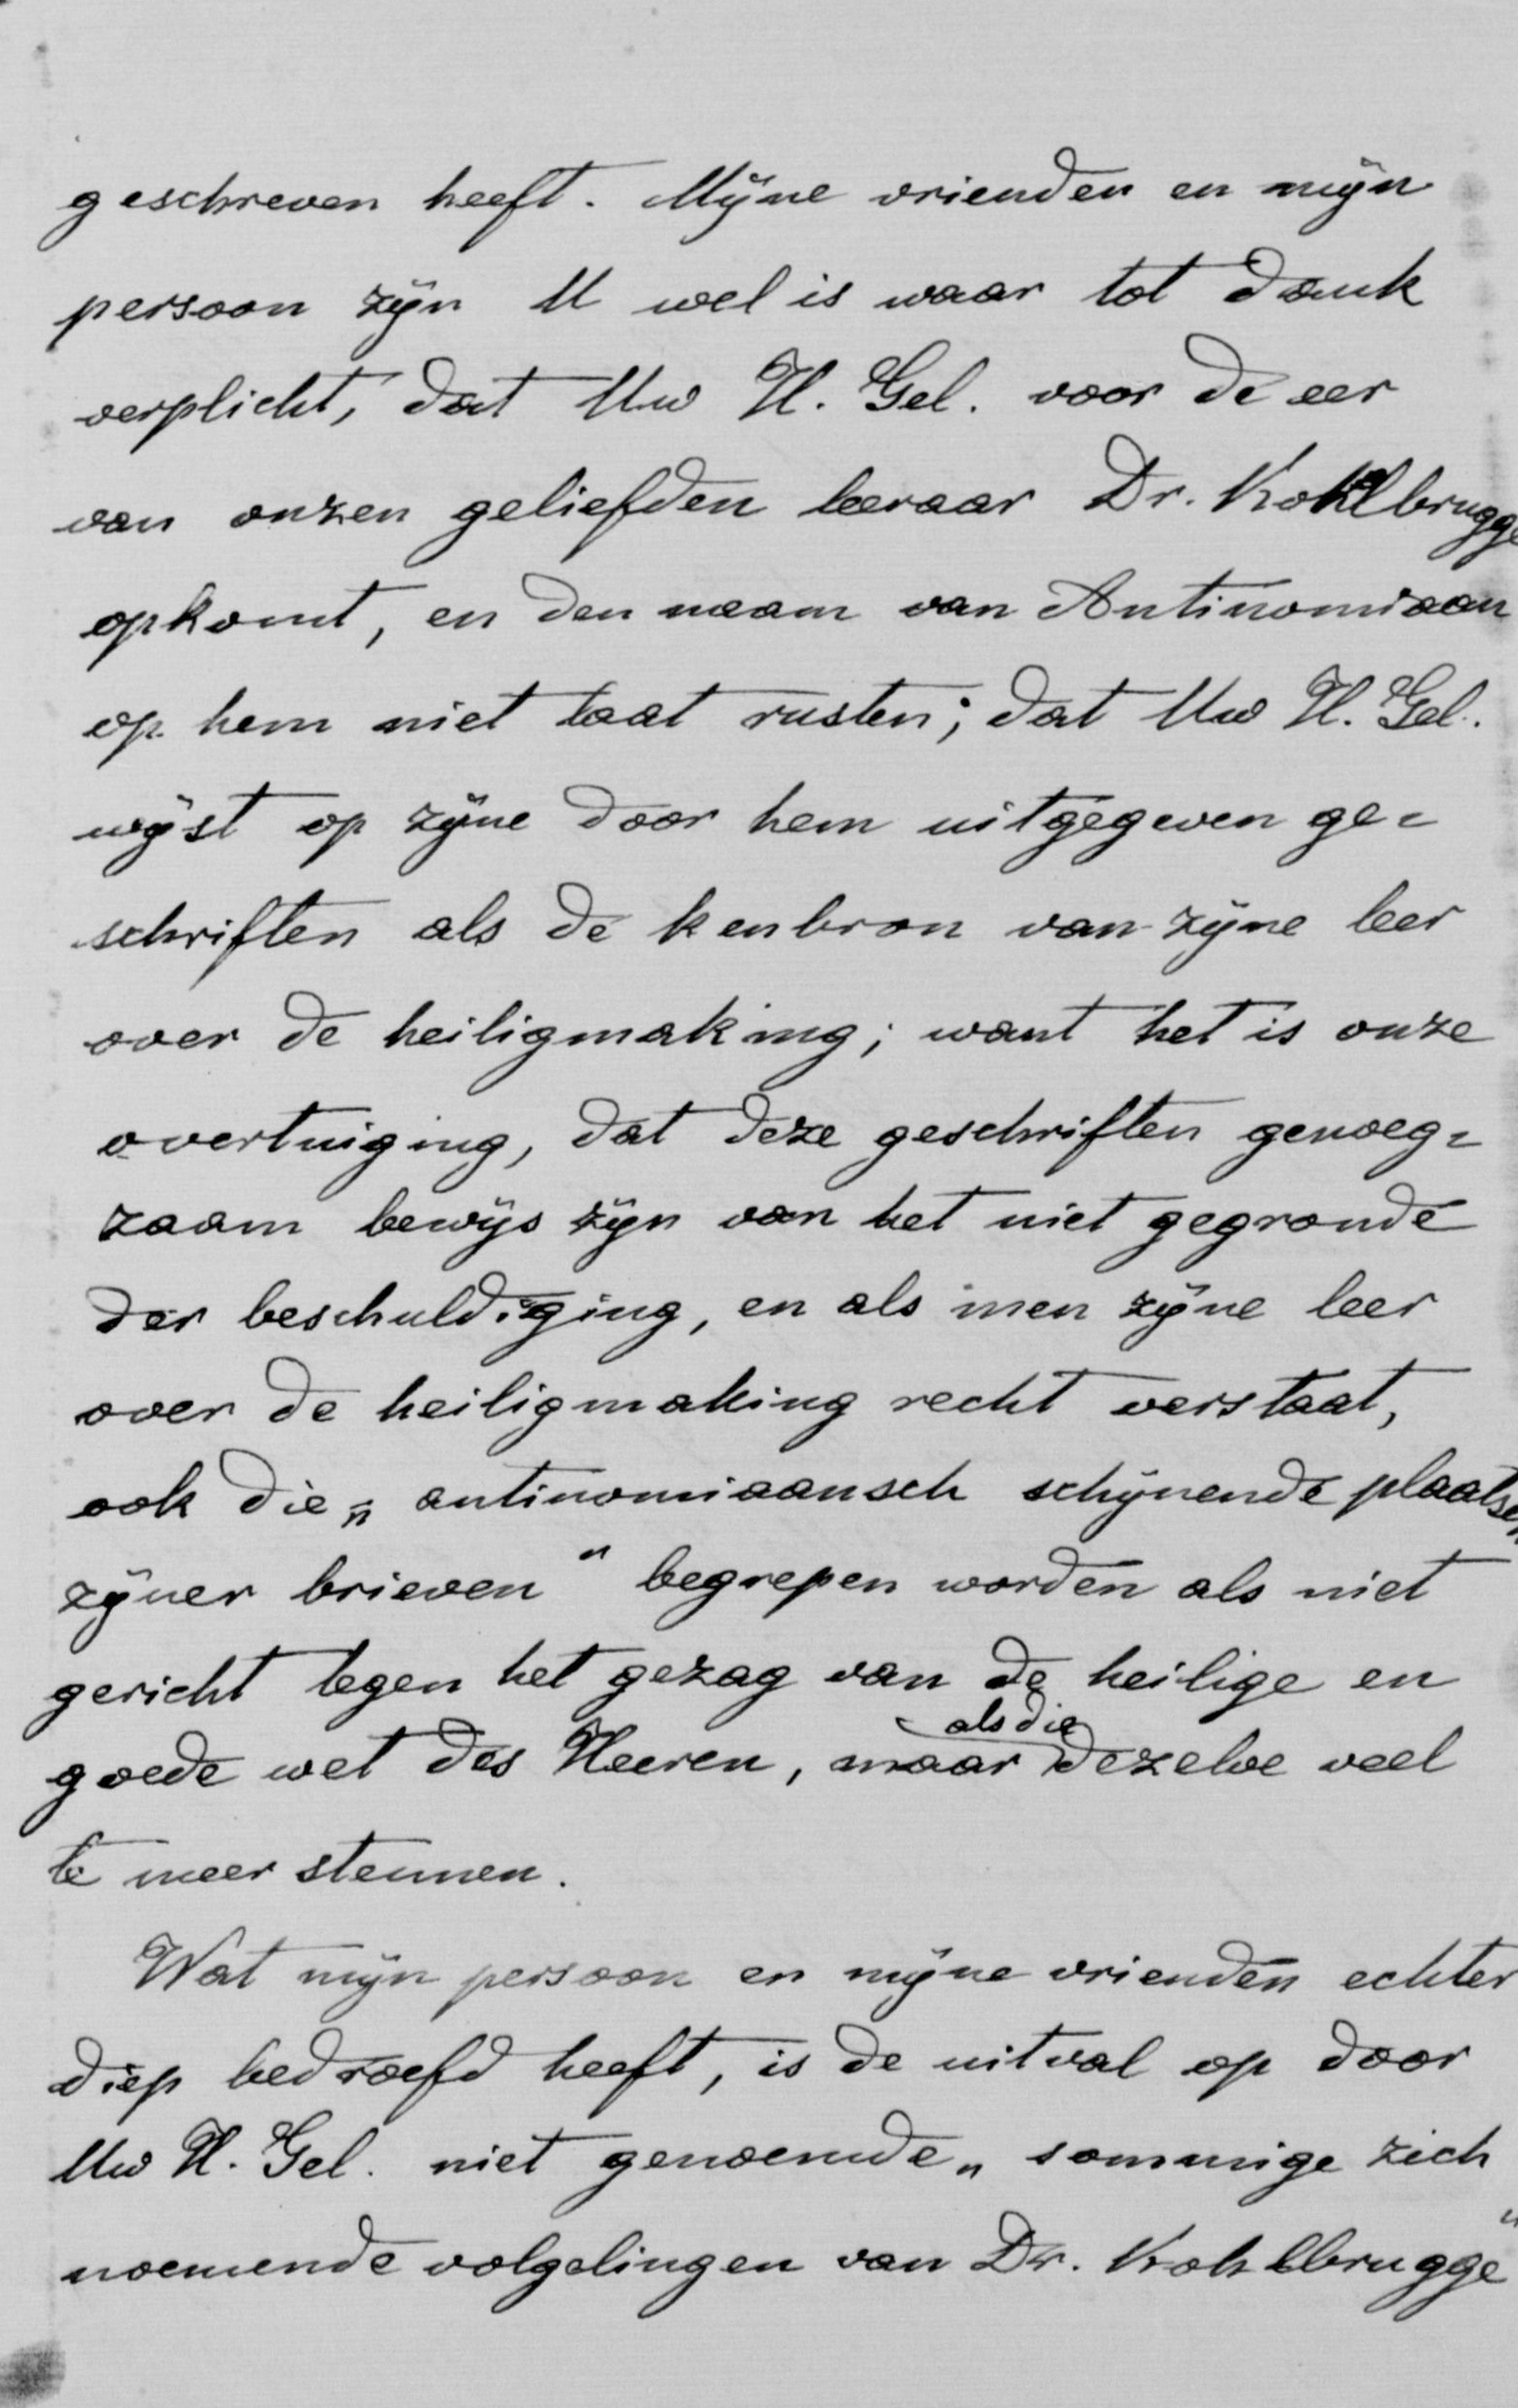 geschreven heeft. Mijne vrienden en mijn
persoon zijn U wel is waar tot dank
verplicht, dat Uw H. Gel. voor de eer
van onzen geliefden leeraar Dr. Kohlbrugge
opkomt, en den naam van Antinomiaan
op hem niet laat rusten; dat Uw H. Gel.
wijst op zijne door hem uitgegeven ge=
schriften als de kenbron van zijne leer
over de heiligmaking; want het is onze
overtuiging, dat deze geschriften genoeg=
zaam bewijs zijn van het niet gegronde
der beschuldiging, en als men zijne leer
over de heiligmaking recht verstaat,
ook die „antinomiaansch schijnende plaatsen
zijner brieven" begrepen worden als niet
gericht tegen het gezag van de heilige en
als die
goede wet des Heeren, maar dezelve veel
te meer steunen.
Wat mijn persoon en mijne vrienden echter
diep bedroefd heeft, is de uitval op door
Uw H. Gel. niet genoemde „sommige zich
noemende volgelingen van Dr. Kohlbrugge"